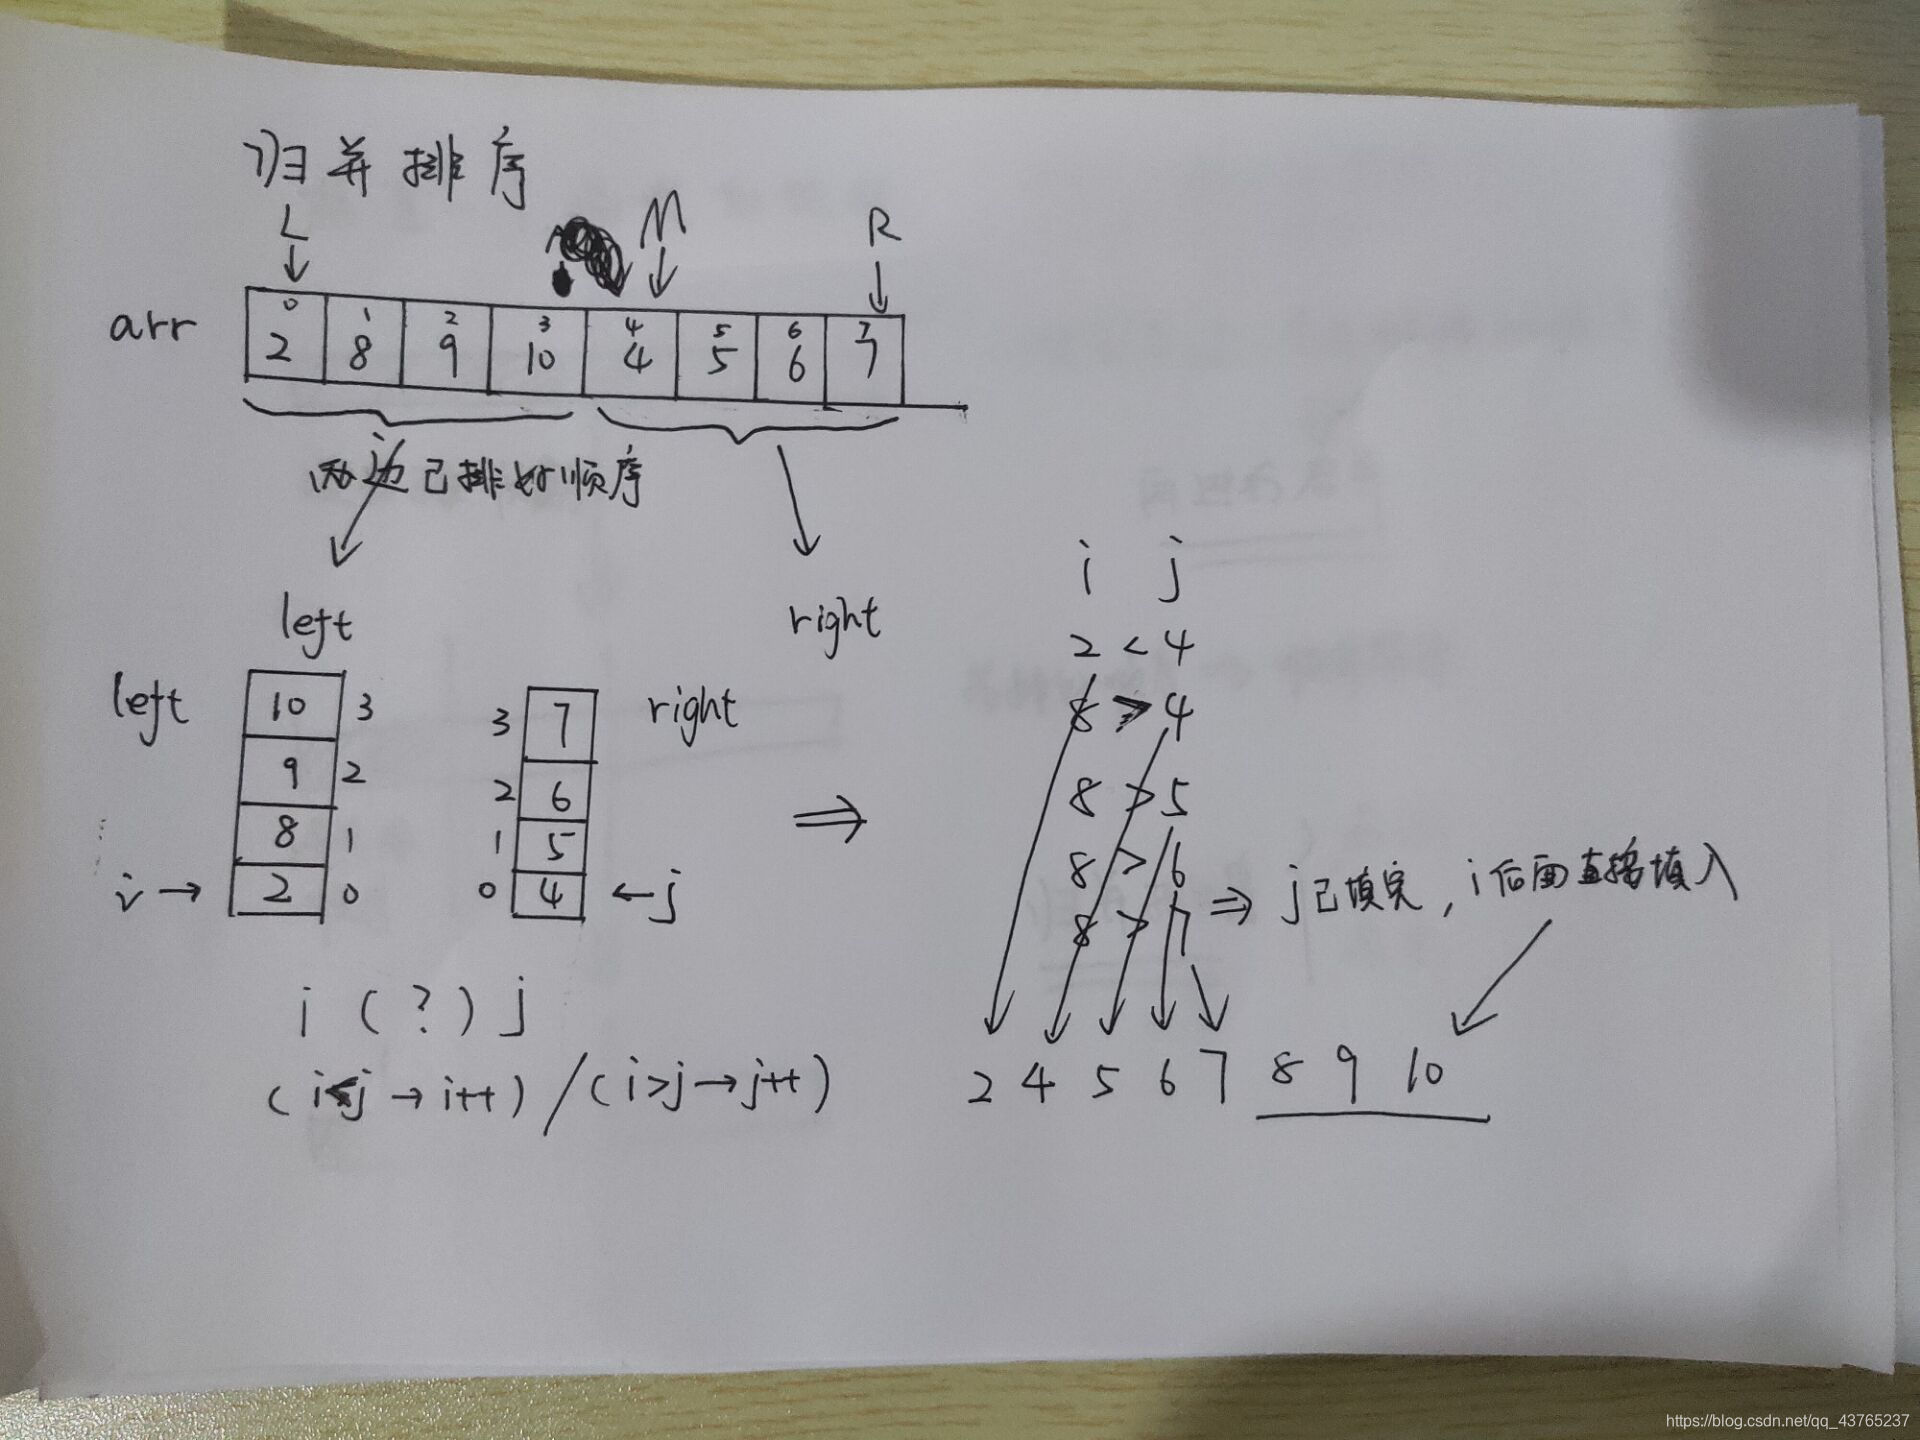 归并排序
L M R
0 1 2 3 4 5 6 7
arr 2 8 9 10 4 5 6 7
两边已排好顺序
left right
left 10 3 3 7 right
9 2 2 6
8 1 1 5
i → 2 0 0 4 ← j
i (?) j
(i<j → i++) / (i>j → j++)
i j
2 < 4
8 > 4
⇒ 8 > 5
8 > 6
8 > 7 ⇒ j已填完，i后面直接填入
2 4 5 6 7 8 9 10
https://blog.csdn.net/qq_43765237